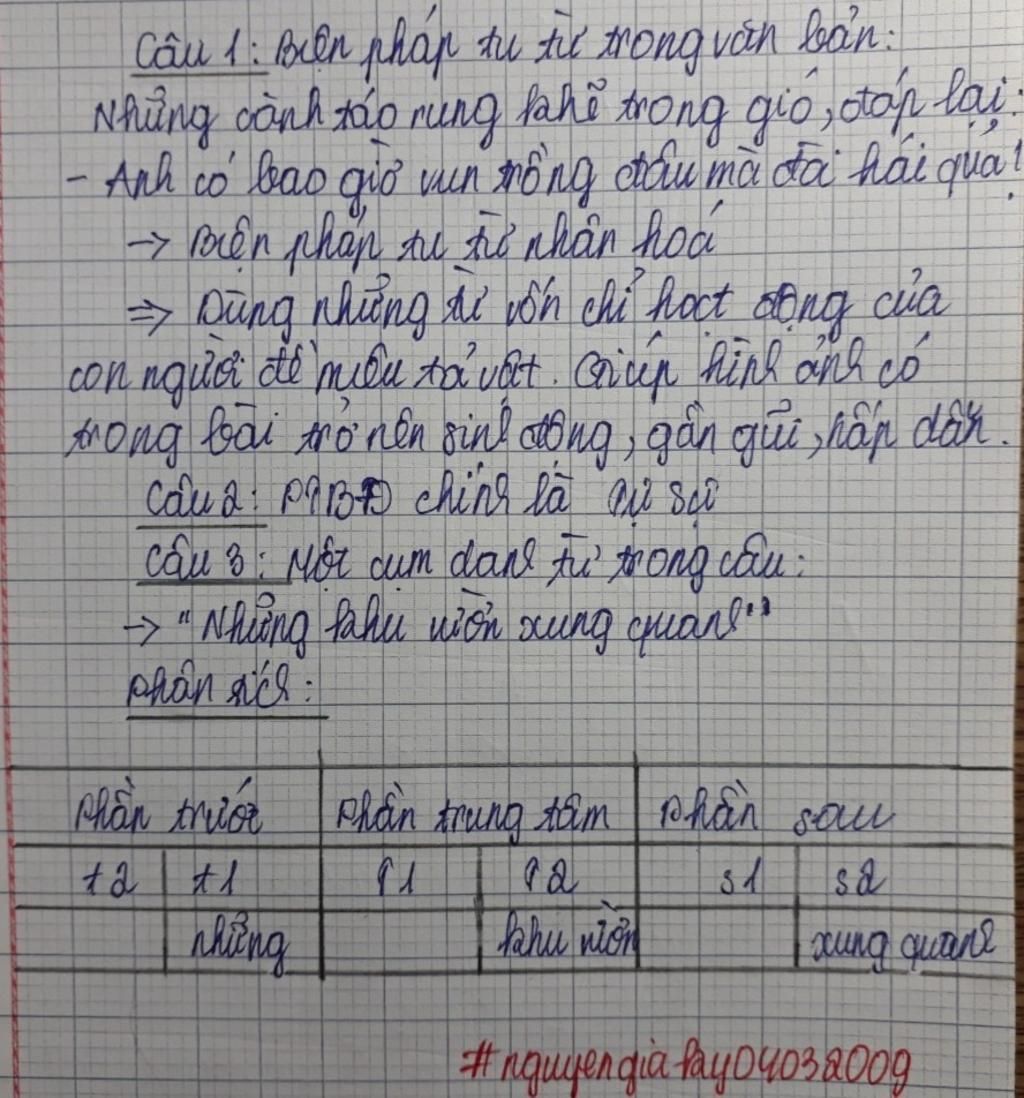 Câu 1: Biện pháp tu từ trong văn bản:
Những cành táo rung khẽ trong gió, đáp lại:
- Anh có bao giờ vun trồng đâu mà đòi hái quả?
→ Biện pháp tu từ nhân hoá
⇒ Dùng những từ vốn chỉ hoạt động của
con người để miêu tả vật. Giúp hình ảnh có
trong bài trở nên sinh động, gần gũi, hấp dẫn.
Câu 2: PTBĐ chính là tự sự
Câu 3: Một cụm danh từ trong câu:
→ "Những khu vườn xung quanh"
Phân tích:
Phần trước Phần trung tâm Phần sau
t2 t1 T1 T2 s1 s2
những khu vườn xung quanh
#nguyengiahay04032009